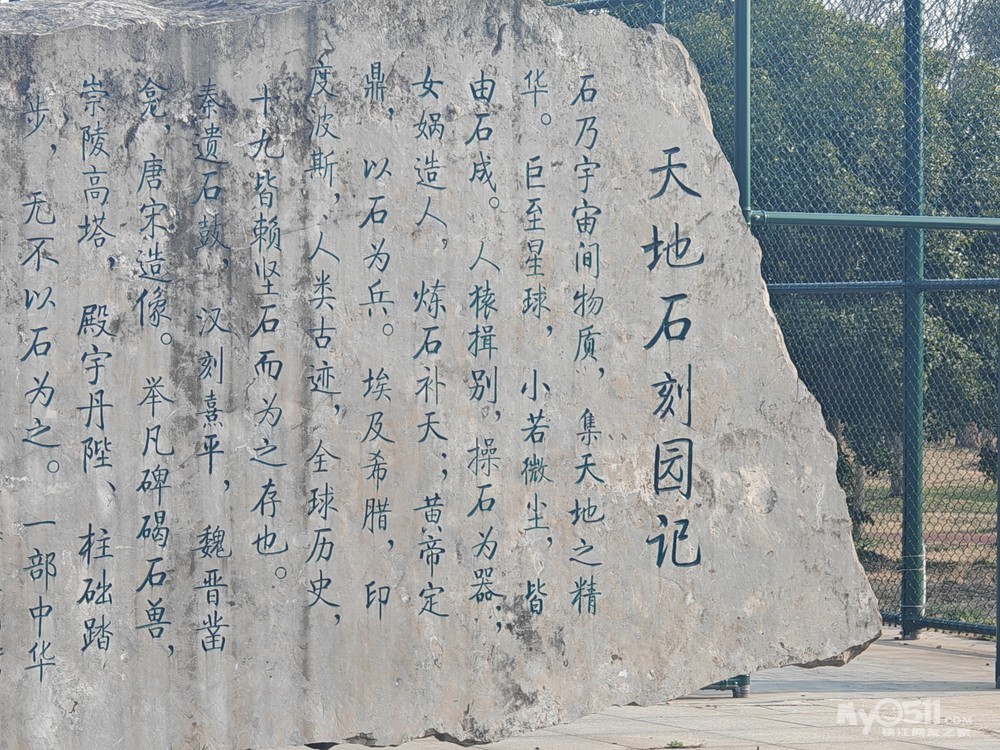 天地石刻园记
石乃宇宙间物质，集天地之精
华。巨至星球，小若微尘，皆
由石成。人猿揖别，操石为器；
女娲造人，炼石补天；黄帝定
鼎，以石为兵。埃及希腊，印
度波斯，人类古迹，全球历史，
十九皆赖坚石而为之存也。
秦遗石鼓，汉刻熹平，魏晋凿
龛，唐宋造像。举凡碑碣石兽，
崇陵高塔，殿宇丹陛、柱础踏
步，无不以石为之。一部中华
My0511.COM
镇江网友之家